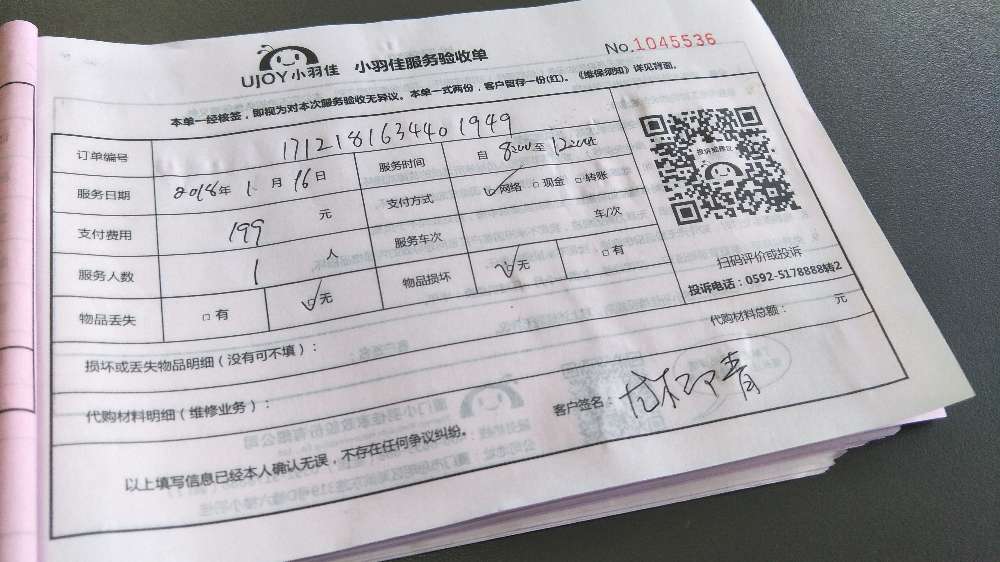 UJOY小羽佳 小羽佳服务验收单 No.1045536
本单一经核签，即视为对本次服务验收无异议。本单一式两份，客户留存一份(红)。《维保须知》详见背面。
订单编号 171218163440 1949
服务日期 2018年 1月 16日 服务时间 自 8:00至 12:00
支付费用 199 元 支付方式 ☑网络 □现金 □转账
服务人数 1 人 服务车次 车/次
物品丢失 □有 ☑无 物品损坏 ☑无 □有
扫码评价或投诉
投诉电话：0592-5178888转2
损坏或丢失物品明细（没有可不填）：
代购材料明细（维修业务）： 代购材料总额： 元
以上填写信息已经本人确认无误，不存在任何争议纠纷。 客户签名：